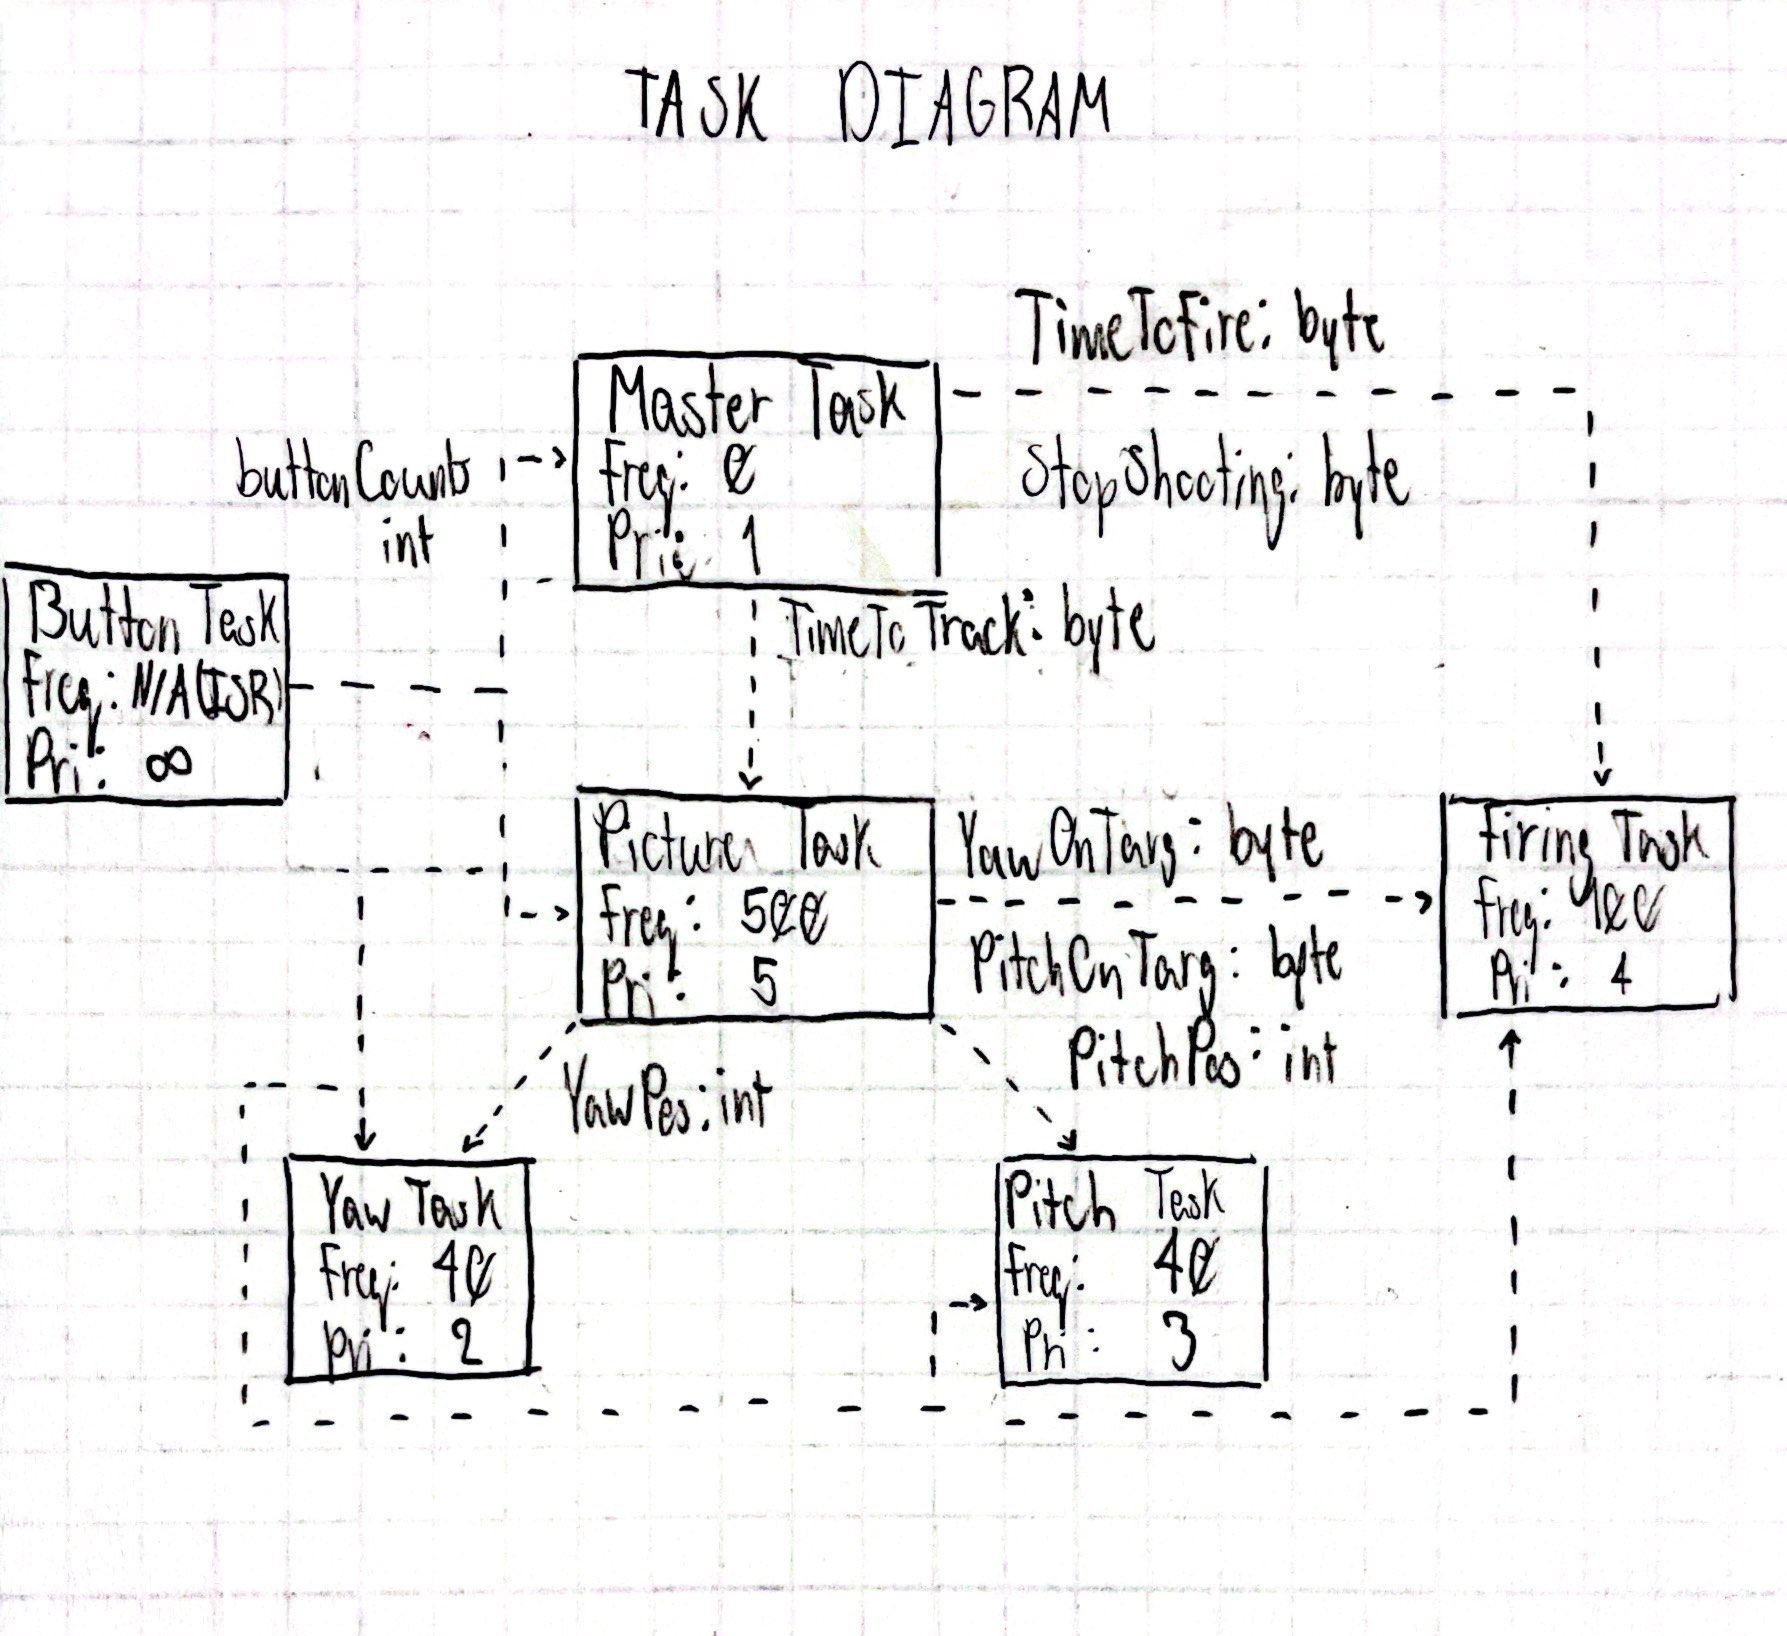 TASK DIAGRAM
TimeToFire: byte
Master Task
Freq: 0
Pri: 1
StopShooting: byte
buttonCounts
int
Button Task
Freq: N/A (ISR)
Pri: ∞
TimeToTrack: byte
Picture Task
Freq: 500
Pri: 5
YawOnTarg: byte
PitchOnTarg: byte
Firing Task
Freq: 400
Pri: 4
YawPos: int
PitchPos: int
Yaw Task
Freq: 40
Pri: 2
Pitch Task
Freq: 40
Pri: 3